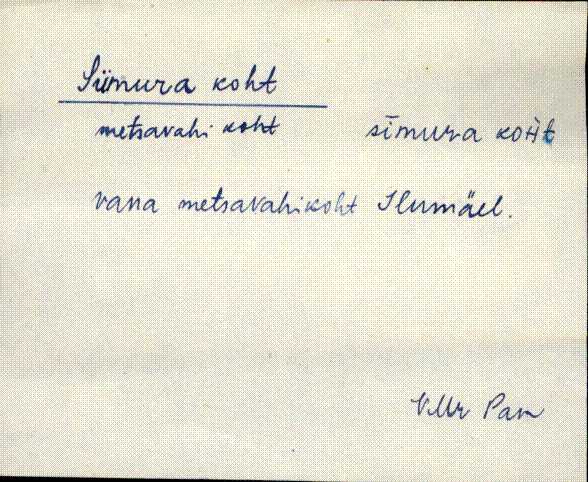 Siimura koht
metsavahi koht sīmura koht
vana metsavahikoht Ilumäel.